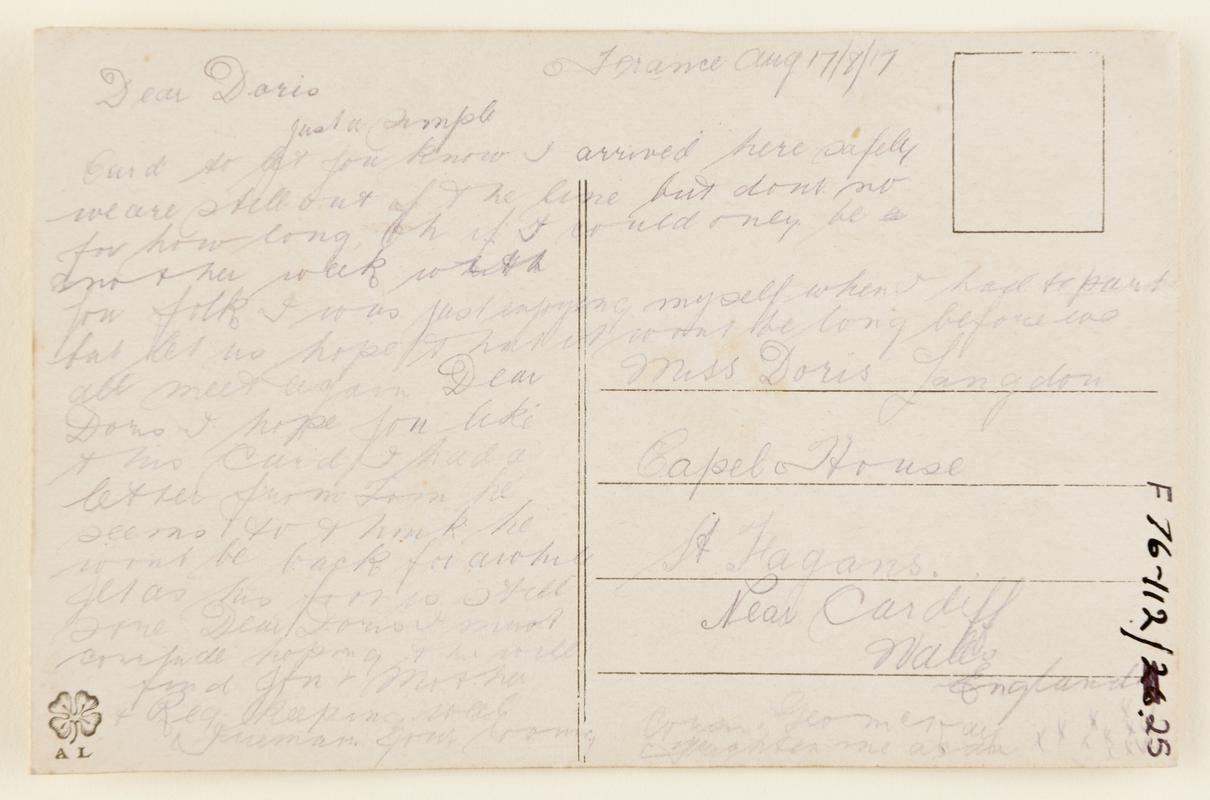 France Aug 17/8/17
Dear Doris
just a simple
Card to let you know I arrived here safely
we are still out of the line but dont no
for how long, Oh if I could only be a
another week with
you folk I was just enjoying myself when I had to part
but let us hope that it wont be long before we
all meet again Dear
Doris I hope you like
this Card, I had a
letter from Tom he
seems to think he
wont be back for awhile
yet as his foot is still
sore Dear Doris I must
conclude hoping this will
find you & Mother
& Reg keeping well
your loving
Cousin
me as an
x x x x
Miss Doris Langdon
Capel House
St Fagans.
Near Cardiff
Wales
England
A L
F 76-112/ .25